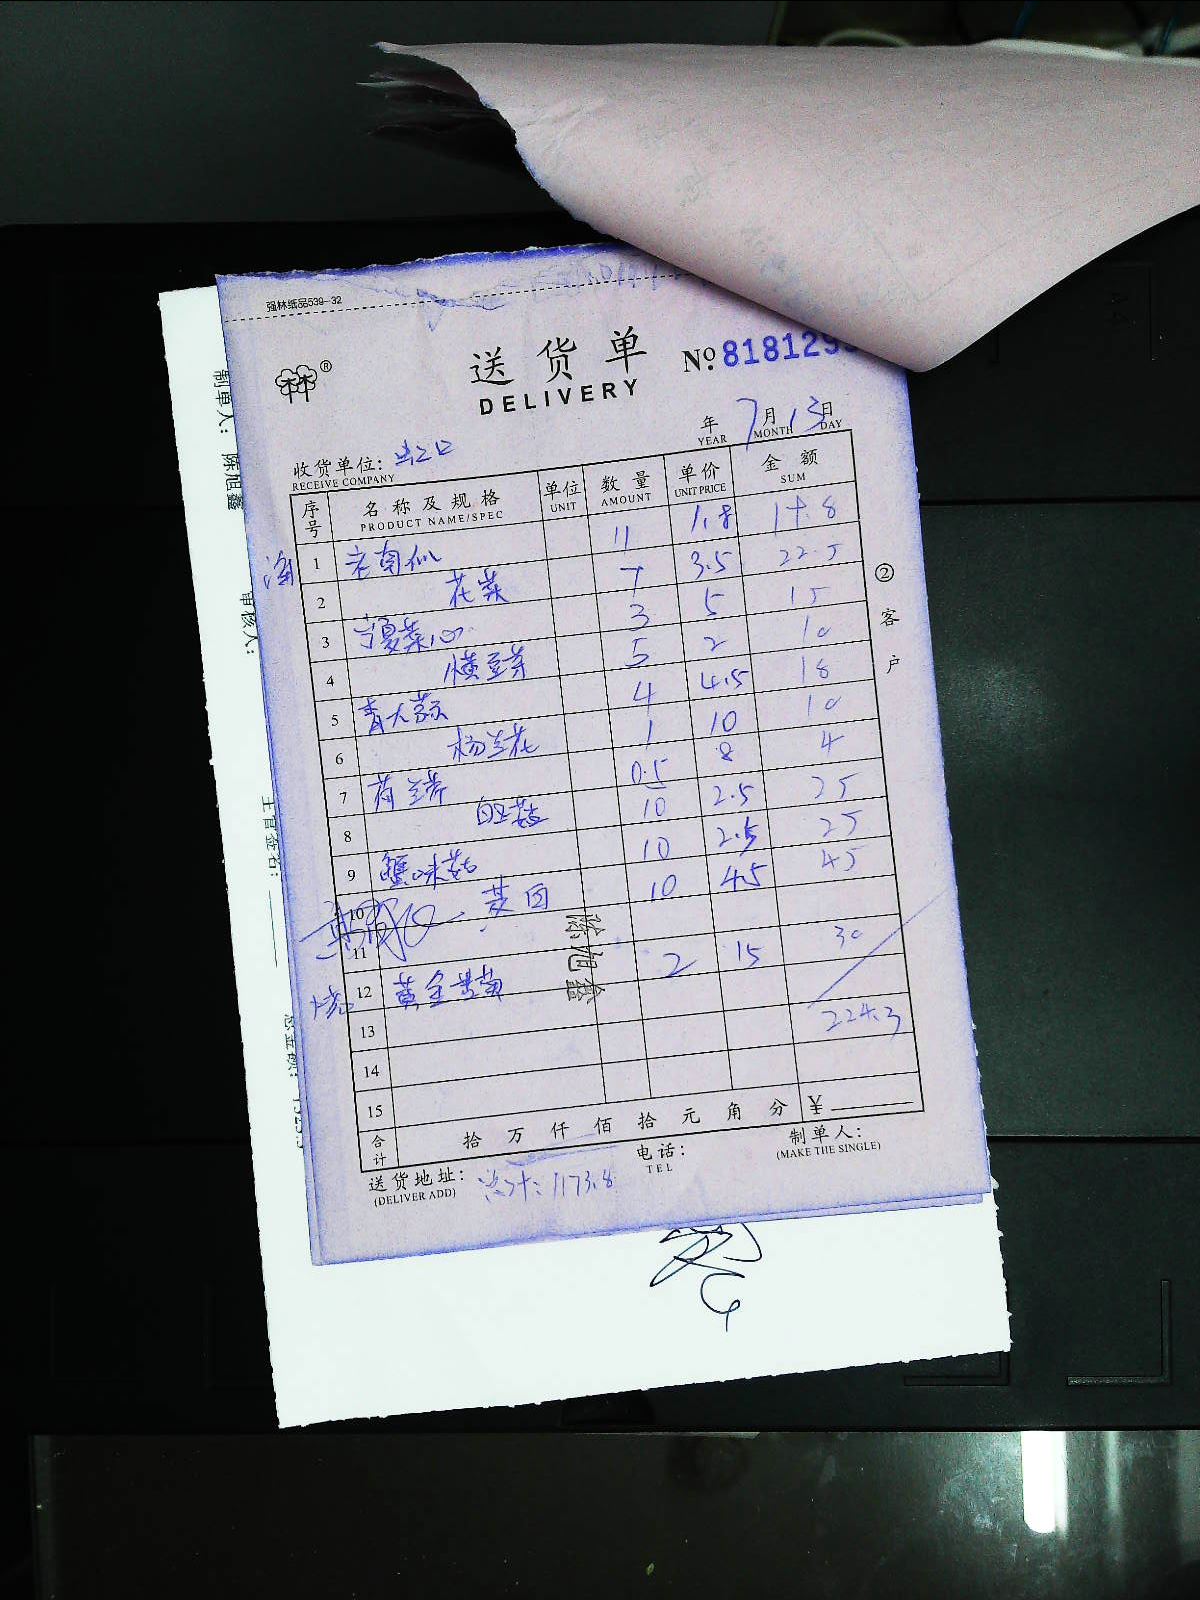 强林纸品539-32
林®
送货单
№ 818129
DELIVERY
年 7月13日
YEAR MONTH DAY
收货单位: 出口
RECEIVE COMPANY
序号 名称及规格 单位 数量 单价 金额
PRODUCT NAME/SPEC UNIT AMOUNT UNIT PRICE SUM
1 老南瓜 11 1.8 17.8
2 花菜 7 3.5 22.5
3 宁夏菜心 3 5 15
4 黄豆芽 5 2 10
5 青大蒜 4 4.5 18
6 杨兰花 1 10 10
7 荷兰芹 0.5 8 4
8 白玉菇 10 2.5 25
9 蟹味菇 10 2.5 25
10 10 4.5 45
11
12 黄金 2 15 30
13 224.3
14
15
合计 拾万仟佰拾元角分 ¥
送货地址: 电话: 制单人:
(DELIVER ADD) TEL (MAKE THE SINGLE)
总计: 1173.8
②客户
陈旭鑫
制单人: 陈旭鑫
审核人:
主管签名: